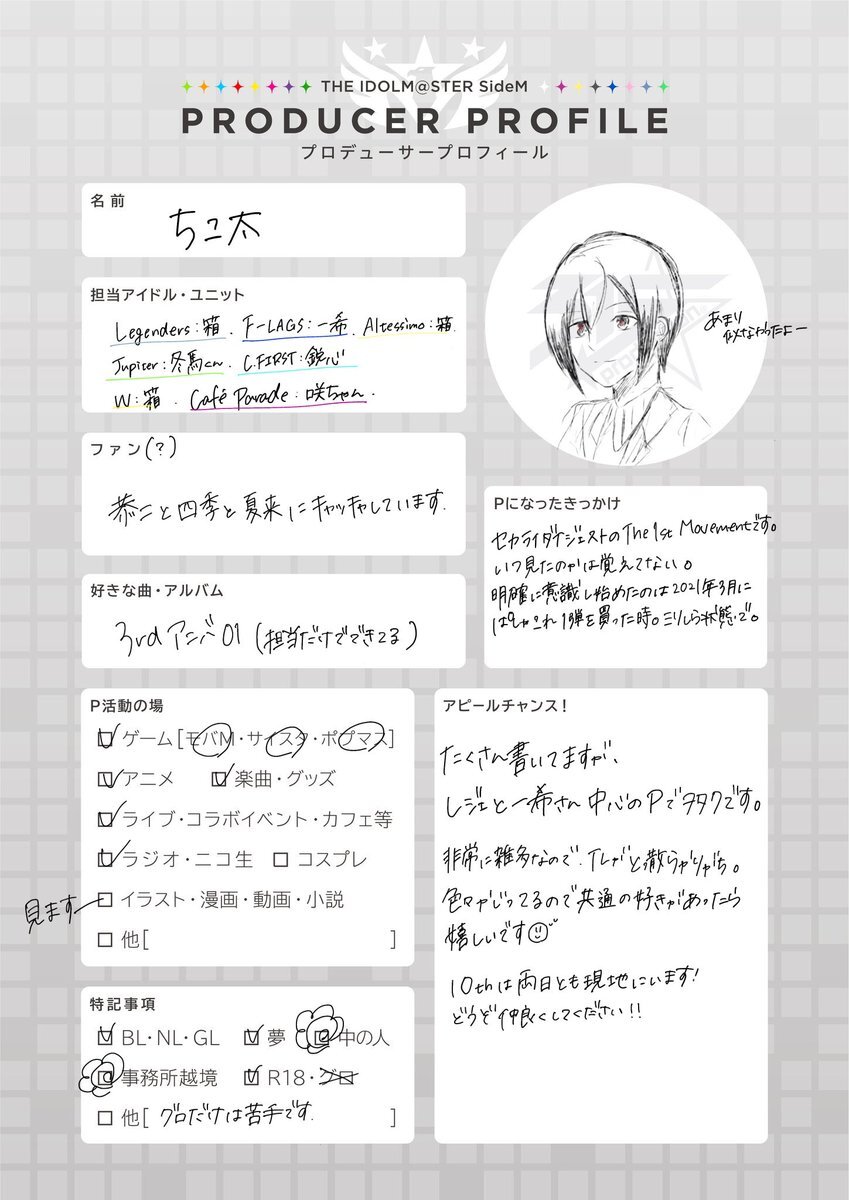 THE IDOLM@STER SideM
PRODUCER PROFILE
プロデューサープロフィール
名前
ちこ太
担当アイドル・ユニット
Legenders:箱. F-LAGS:一希. Altessimo:箱.
Jupiter:冬馬くん. C.FIRST:鋭心
W:箱. Café Parade:咲ちゃん.
あまり
似なかったよー
ファン(?)
恭二と四季と夏来にキャッキャしています.
好きな曲・アルバム
3rdアニバ01(担当だけでできてる)
Pになったきっかけ
セカライダイジェストのThe 1st Movementです。
いつ見たのかは覚えてない。
明確に意識し始めたのは2021年3月に
ぱしゃこれ1弾を買った時。ミリしら状態で。
P活動の場
ゲーム[モバM・サイスタ・ポプマス]
アニメ 楽曲・グッズ
ライブ・コラボイベント・カフェ等
ラジオ・ニコ生 コスプレ
見ます イラスト・漫画・動画・小説
他[ ]
特記事項
BL・NL・GL 夢 中の人
事務所越境 R18・グロ
他[グロだけは苦手です. ]
アピールチャンス!
たくさん書いてますが、
レジェと一希さん中心のPでヲタクです。
非常に雑多なので、TLがと散らかりがち。
色々かじってるので共通の好きがあったら
嬉しいです
10thは両日とも現地にいます!
どうぞ仲良くしてください!!